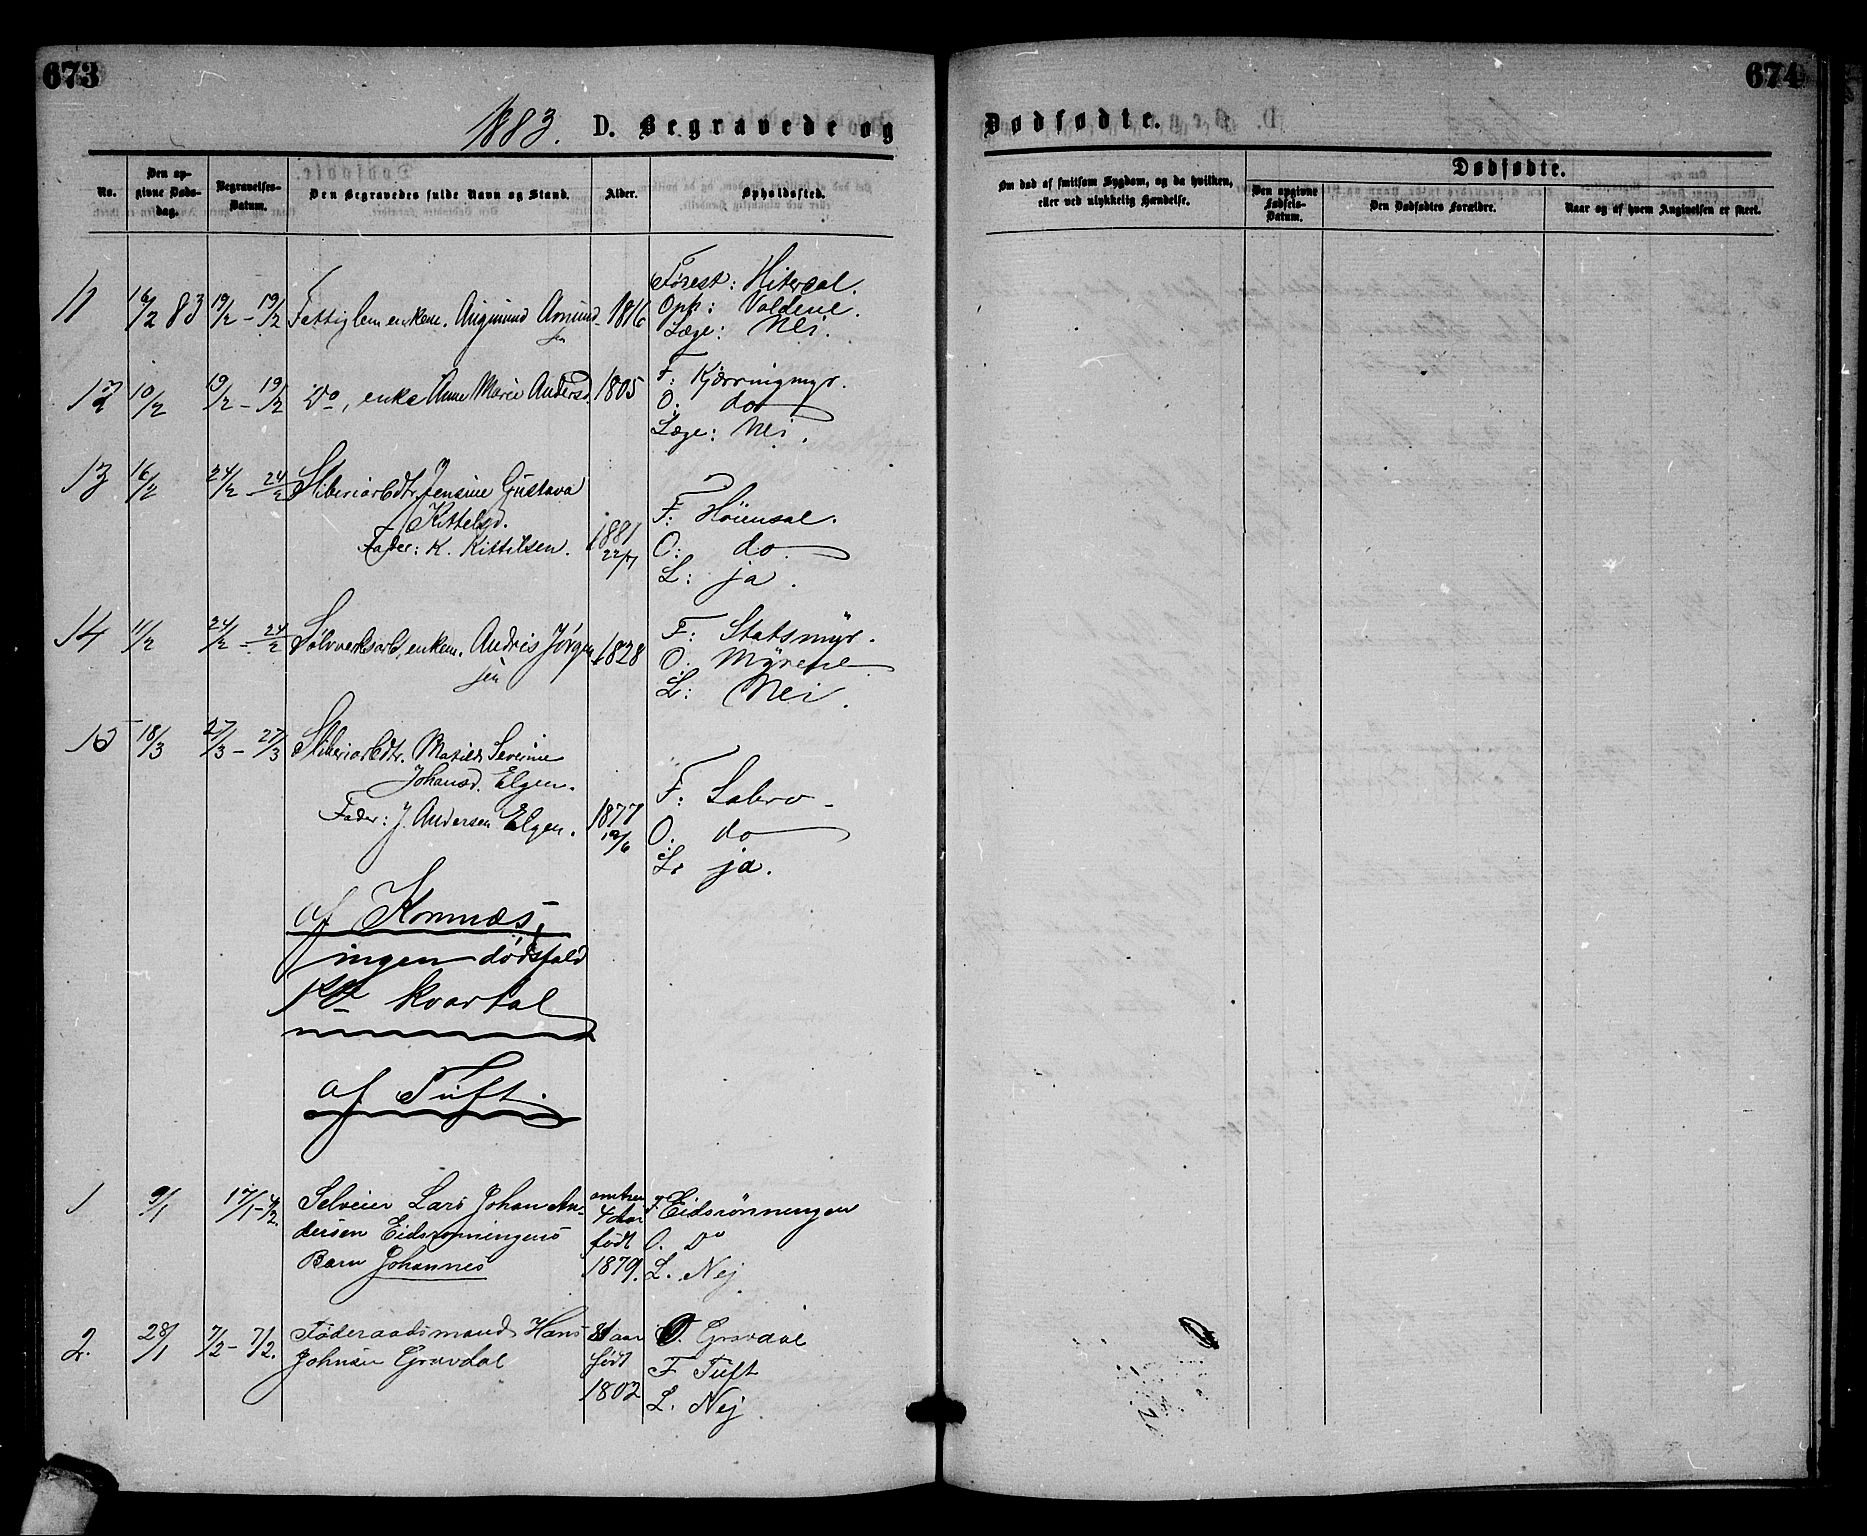 673
674
1883. D. Begravede og
Dødfødte.
No.
Den op-
givne Døds-
dag.
Begravelses-
Datum.
Den Begravedes fulde Navn og Stand.
Alder.
Opholdssted.
Om død af smitsom Sygdom, og da hvilken,
eller ved ulykkelig Hændelse.
Dødfødte.
Den opgivne
Fødsels-
Datum.
Den Dødfødtes Forældre.
Naar og af hvem Angivelsen er skeet.
11 16/2 83 19/2 - 19/2 Fattiglem enkem. Angmund Amund- 1816
sen
Førest: Hiterdal.
Oph: Valdene.
Læge: Nei.
12 10/2 19/2 - 19/2 Do, enke Anne Marie Andersd. 1805
F: Kjærringmyr.
O: do
Læge: Nei.
13 16/2 24/2 - 24/2 Sliberiarbdtr. Jensine Gustava
Kittelsd.
Fader: K. Kittilsen. 1881
22/7
F: Høiensal.
O: do.
L: ja.
14 11/2 24/2 - 24/2 Sølvverksarb, enkem. Andris Jörgen 1828
sen
F: Statsmyr.
O: Myrene
L: Nei.
15 18/3 27/3 - 27/3 Sliberiarbdtr. Matilde Severine
Johansd. Elgen.
Fader: J. Andersen Elgen. 1877
19/6
F: Labro
O: do
L: ja.
af Komnæs,
ingen dødsfald
1ste kvartal
af Tuft.
1 9/1 17/1-4/2. Selveier Lars Johan An-
dersen Eidsrønningens
Barn Johannes
omtren
4 Aar
født
1879.
F Eidsrönningen
O. Do
L. Nej
2. 28/1 7/2 - 7/2. Føderaadsmand Hans
Johnsen Gravdal
81 aar
født
1802
O. Gravdal
F Tuft
L. Nej